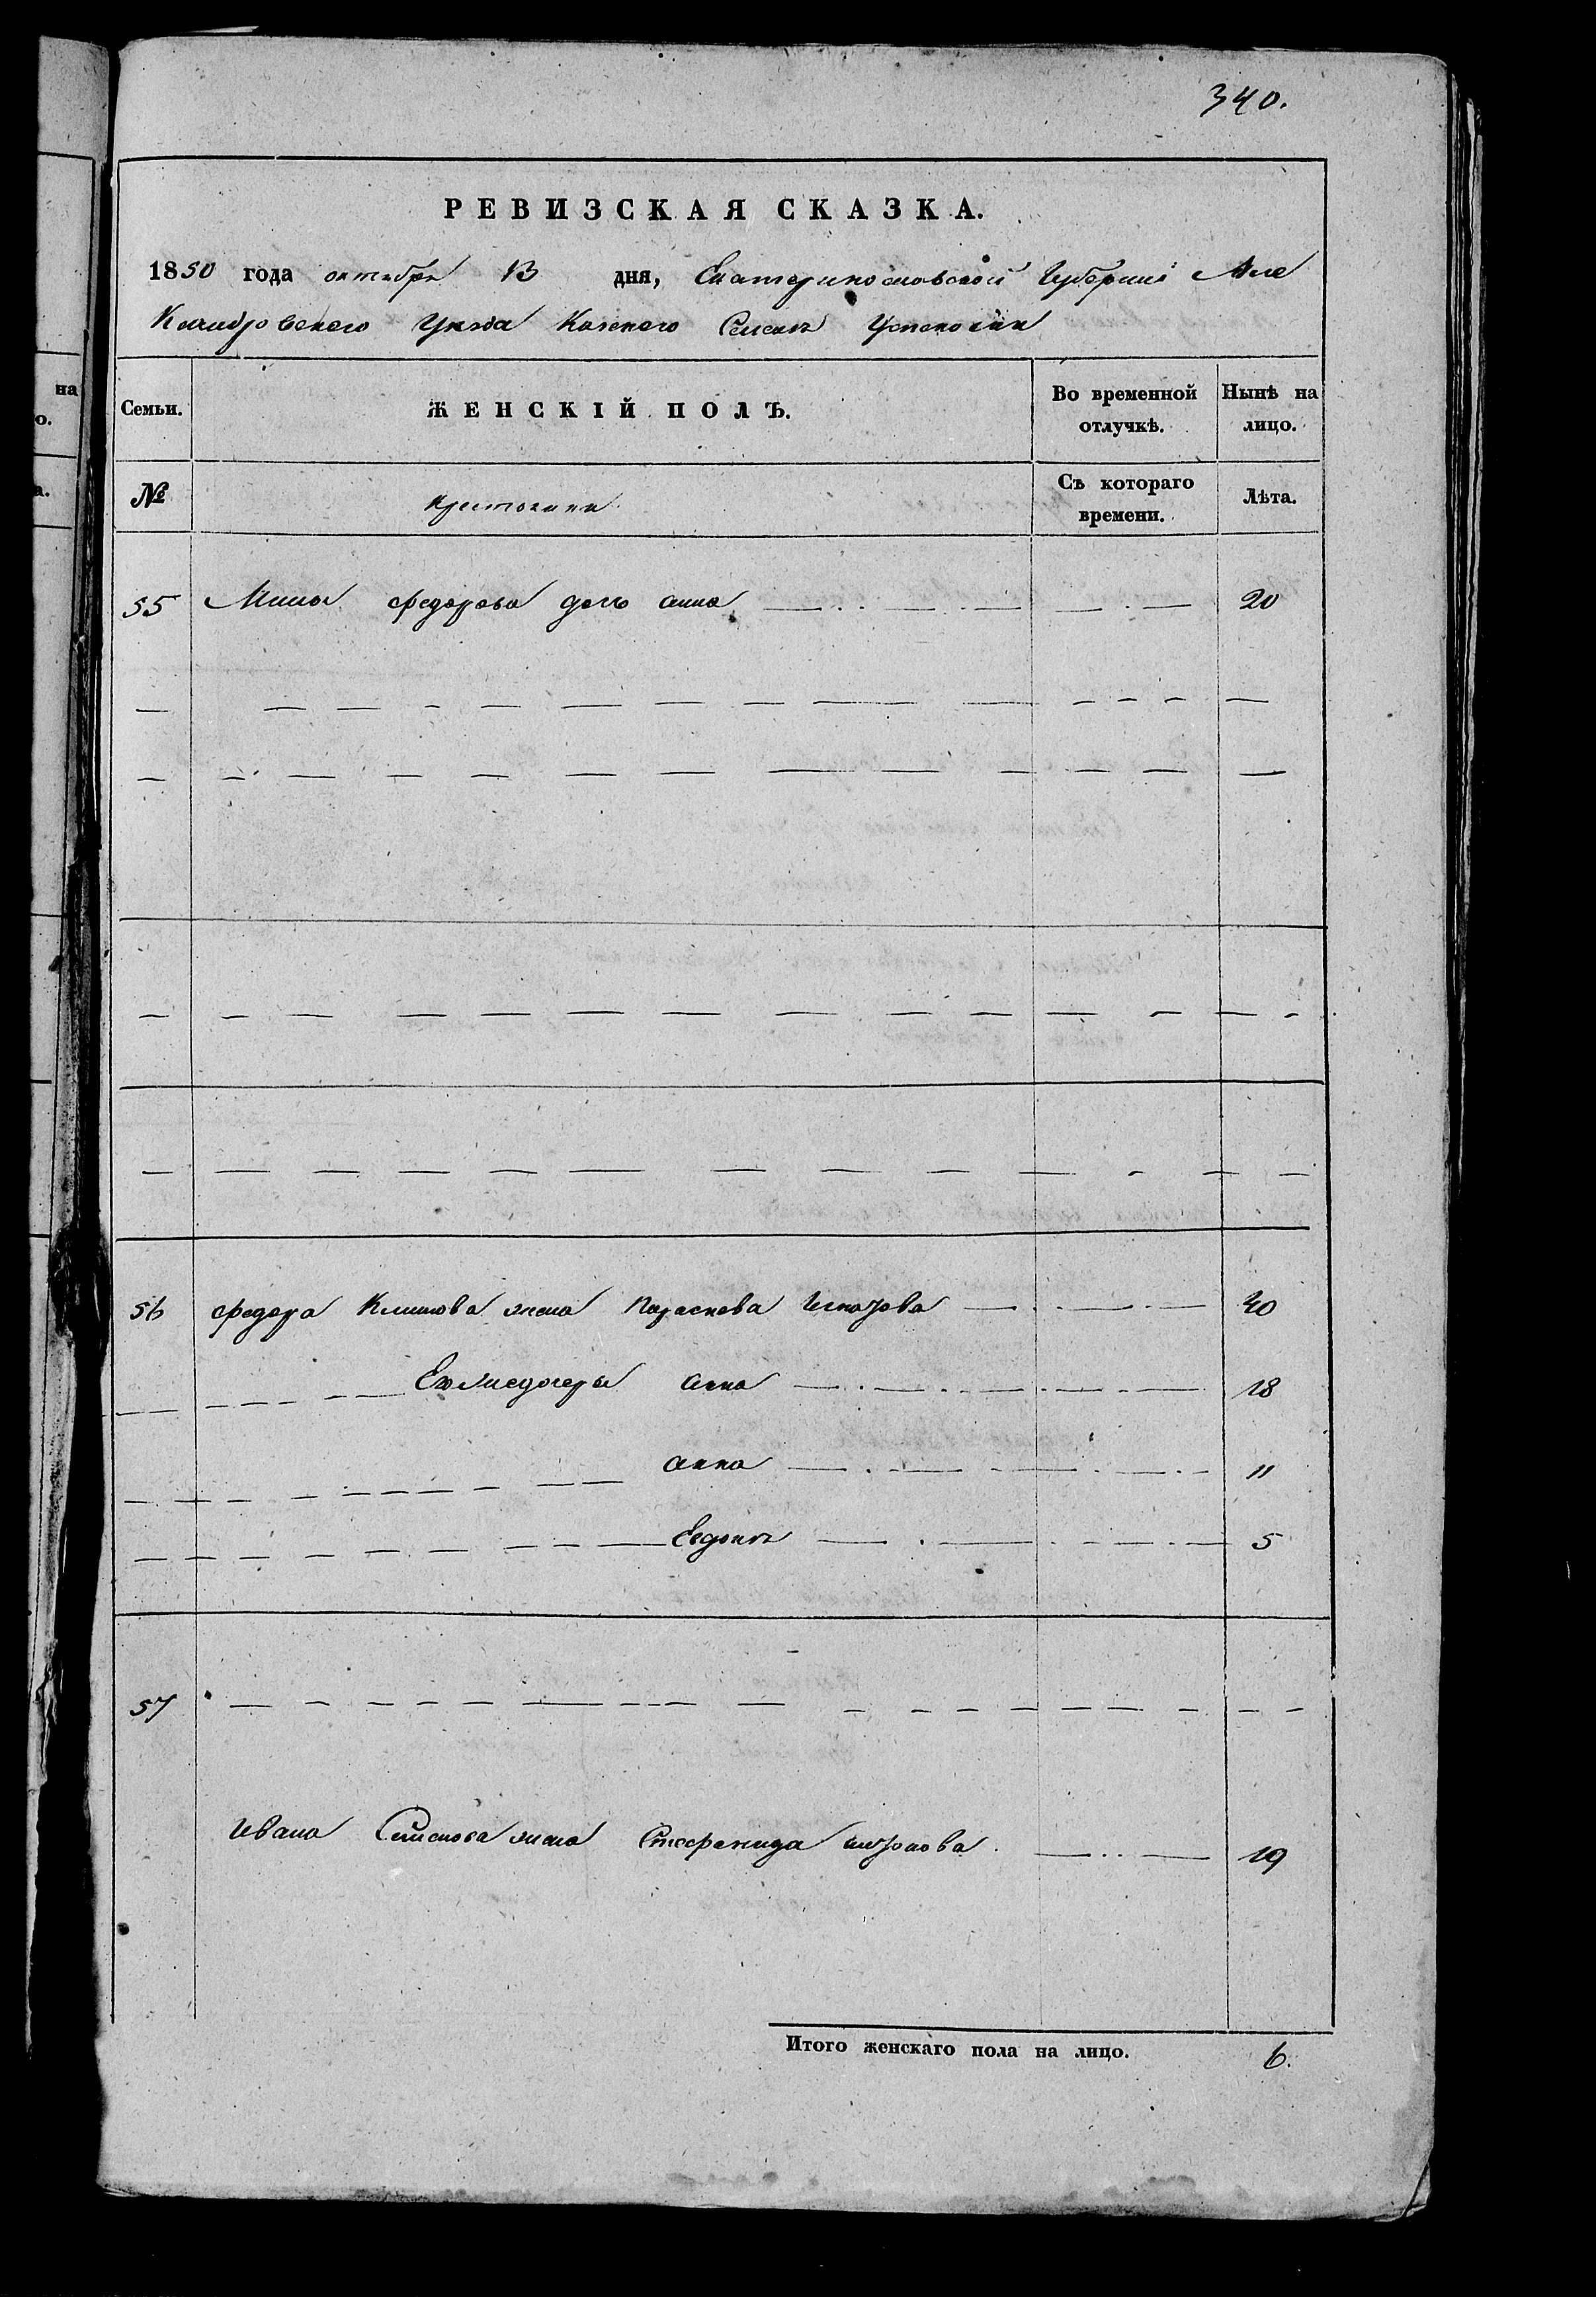 на
о.
а.
340.
РЕВИЗСКАЯ СКАЗКА.
1850 года октября 13 дня, Екатеринославской Губернии Але
ксандровского Уезда Казенного Селения Успеновки
Семьи. ЖЕНСКІЙ ПОЛЪ. Во временной отлучкѣ. Нынѣ на лицо.
№ крестьяни Съ котораго времени. Лѣта.
55 Мины федорова дочь анна 20
56 федора Климова жена Параскева 40
Его дочери анна 18
анна 11
Евдокия 5
57
Ивана Семенова жена Стефанида 19
Итого женскаго пола на лицо. 6.